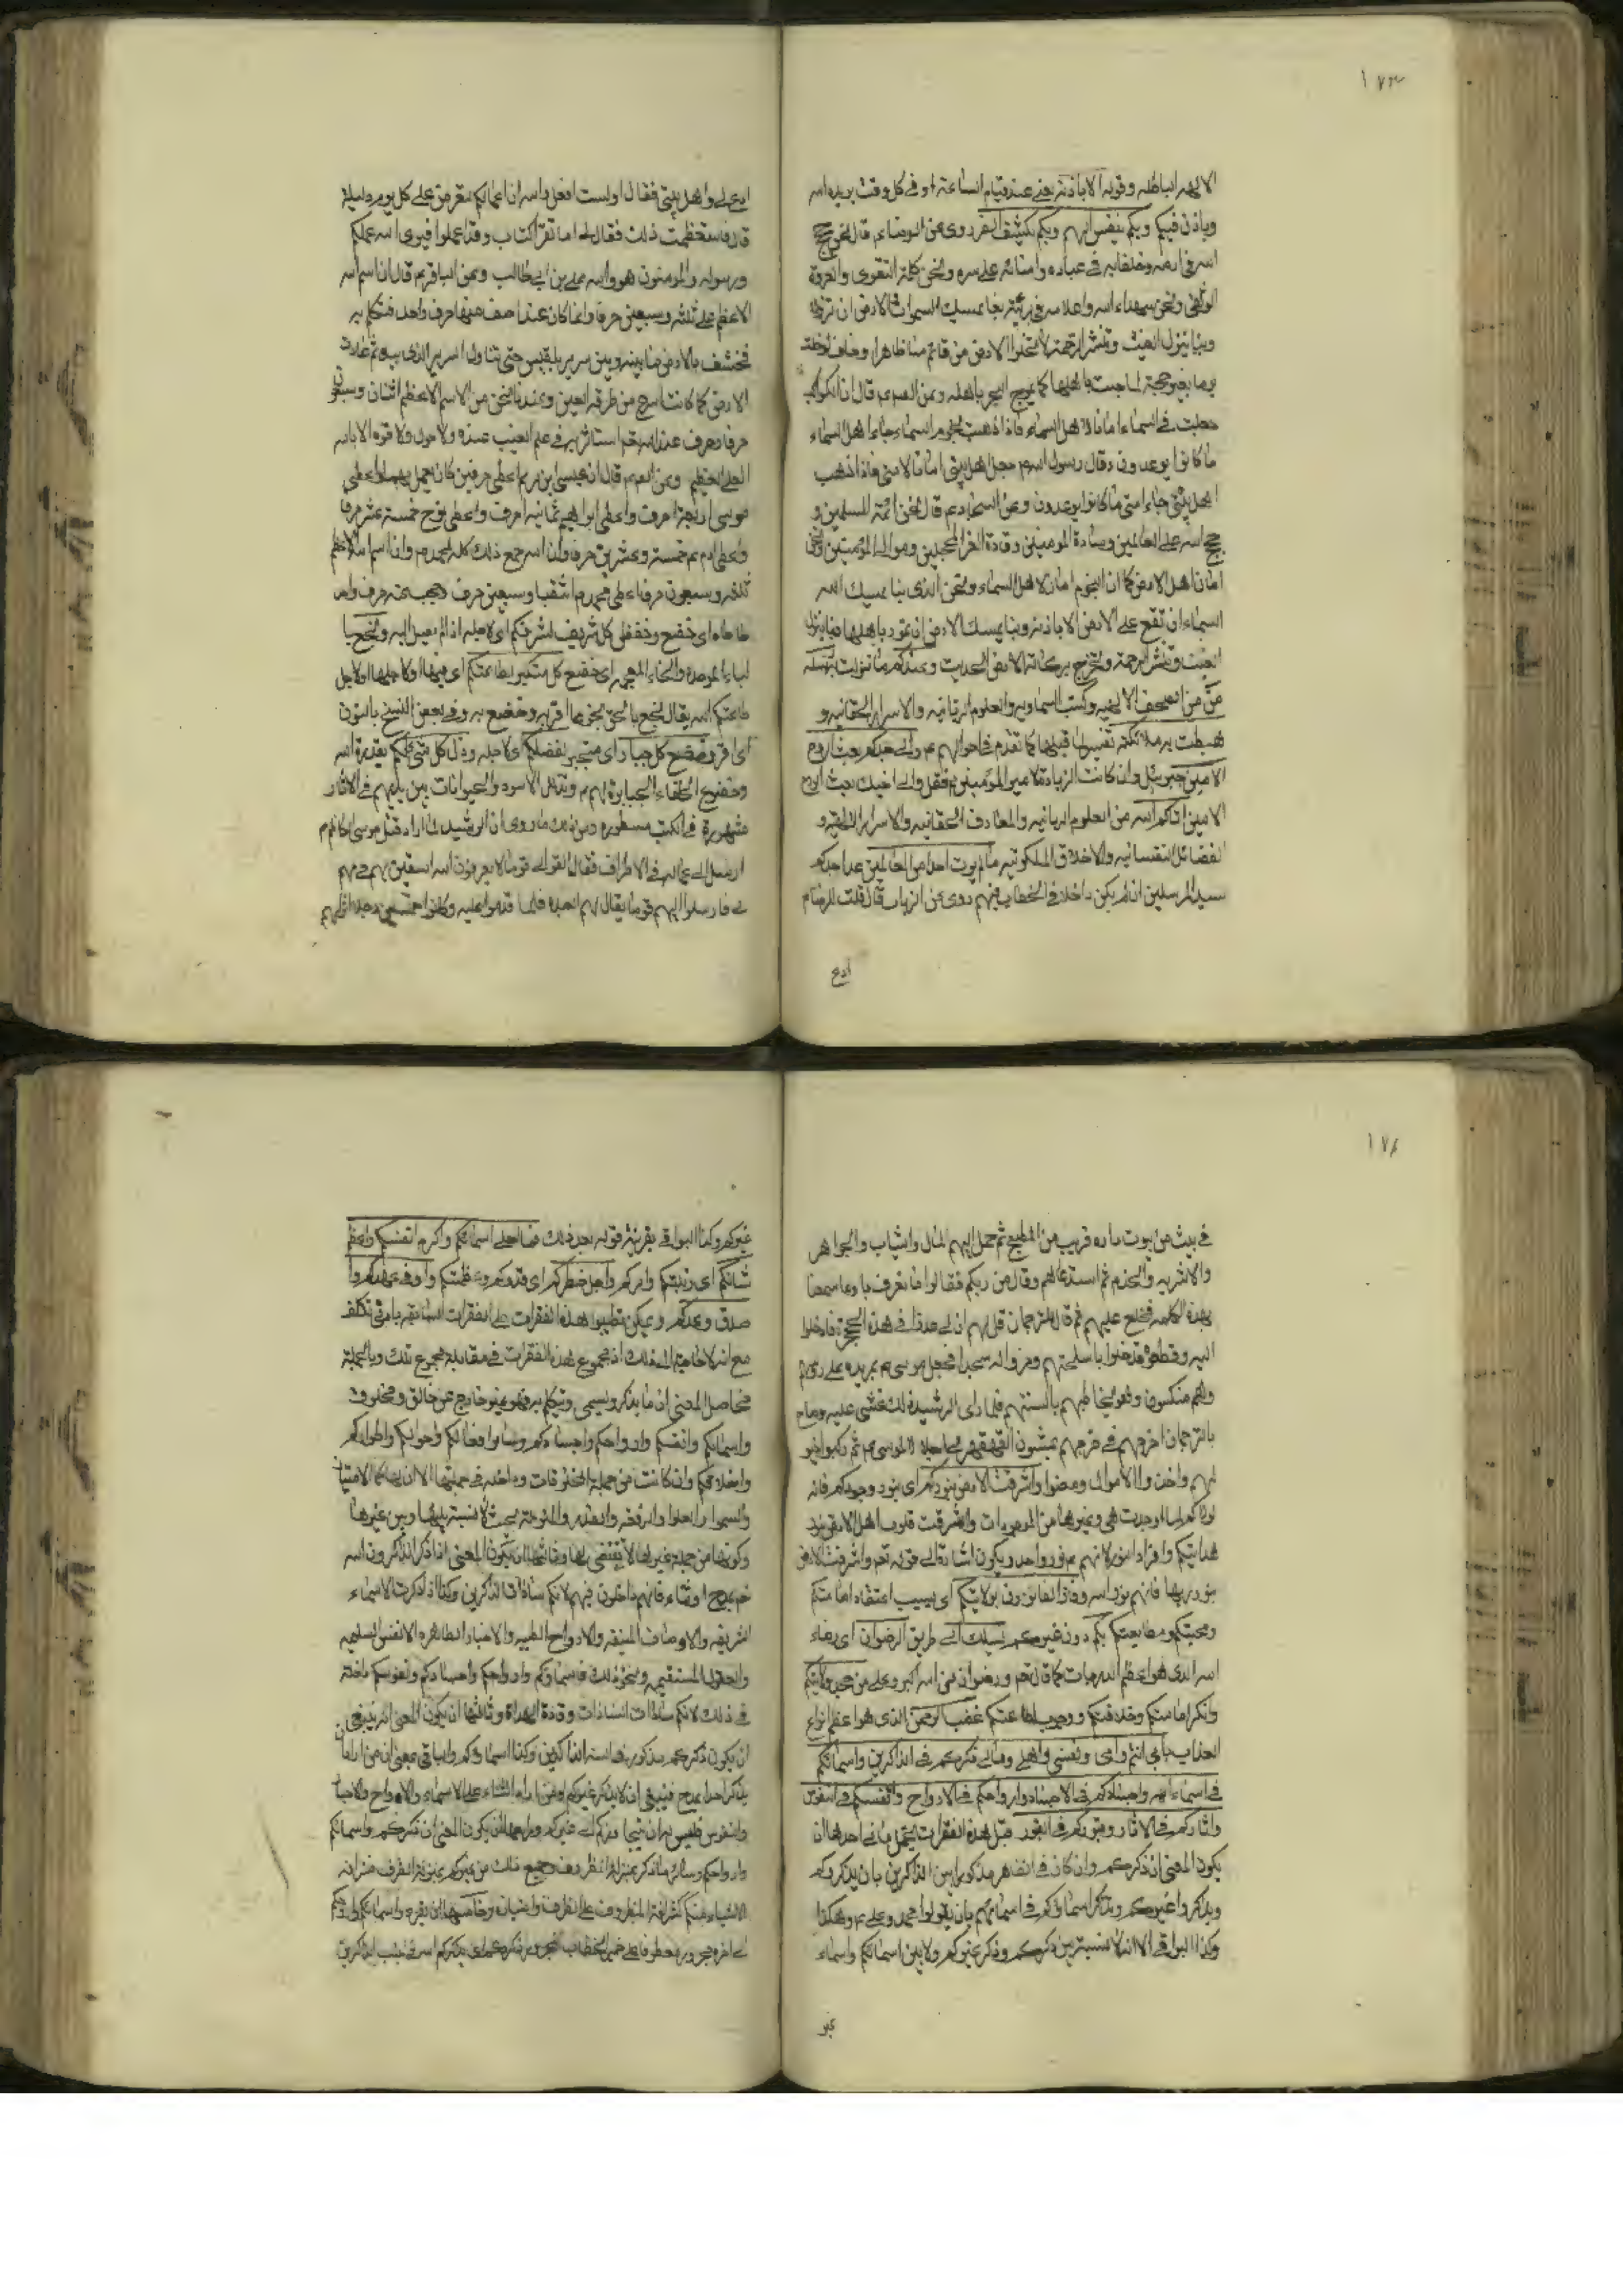 ١٧٣
الالهر اباطله وقوله الا باذنه يعنى عند قيام الساعة او فى كل وقت يريده الله
وياذن فيكم وبكم ينفس الهم وبكم يكشف الضر روى عن الرضاء قال نحن حجج
الله فى ارضه وخلفائه فى عباده وامنائه على سره ونحن كلمة التقوى والعروة
الوثقى ونحن شهداء الله واعلامه فى بريته بنا يمسك السموات الارض ان تزولا
وبنا ينزل الغيث وينشر الرحمة لا تخلوا الارض من قائم منا ظاهرا وخاف لو خلت
يوما بغير حجة لماجت باهلها كما يموج البحر باهله وعن النبى قال ان الكواكب
جعلت فى السماء امانا لاهل السماء فاذا ذهبت نجوم السماء جاء اهل السماء
ما كانوا يوعدون وقال رسول الله جعل اهل بيتى امانا لامتى فاذا ذهب
اهل بيتى جاء امتى ما كانوا يوعدون وعن السجاد ع قال نحن ائمة المسلمين و
حجج الله على العالمين وسادة المومنين وقادة الغر المحجلين وموالى المؤمنين ونحن
امان اهل الارض كما ان النجوم امان لاهل السماء ونحن الذى بنا يمسك الله
السماء ان تقع على الارض الا باذنه وبنا يمسك الارض ان تميد باهلها وبنا ينزل
الغيث وينشر الرحمة وتخرج بركات الارض الحديث وعندكم ما نزلت به رسله
من الصحف الالهيه وكتب السماويه والعلوم الربانيه والاسرار الحقانيه و
هبطت به ملائكته تفسيرها قبلها كما تقدم فى احوالهم ع والى جدكم بعث الروح
الامين جبرئيل وان كانت الزيارة لامير المؤمنين ع فقل والى اخيك بعث الروح
الامين اتاكم الله من العلوم الربانيه والمعارف الحقانيه والاسرار اللاهيه و
الفضائل النفسانيه والاخلاق الملكوتيه ما لم يوت احدا من العالمين عدا جدكم
سيد المرسلين ان لم يكن داخلا فى الخطاب فيهم روى عن الزيات قال قلت للرضا ع
ادع
ادع لى ولاهل بيتى فقال اولست افعل والله ان اعمالكم تعرض على كل يوم وليلة
قال فاستعظمت ذلك فقال لى اما تقرا كتاب وقل اعملوا فيرى الله عملكم
ورسوله والمومنون هو والله على بن ابى طالب وعن الباقر ع قال ان اسم الله
الاعظم على ثلثه وسبعين حرفا وانما كان عند اصف منها حرف واحد فتكلم به
فخسف بالارض ما بينه وبين سرير بلقيس حتى تناول السرير الذى بيده ثم عادت
الارض كما كانت اسرع من طرفة العين وعندنا نحن من الاسم الاعظم اثنان وسبعون
حرفا وحرف عند الله تعالى استاثر به فى علم الغيب عنده ولا حول ولا قوة الا بالله
العلى العظيم وعن النبى قال ان عيسى ابن مريم اعطى حرفين كان يعمل بهما واعطى
موسى اربعة احرف واعطى ابراهيم ثمانيه احرف واعطى نوح خمسة عشر حرفا
واعطى ادم ع خمسة وعشرين حرفا وان الله جمع ذلك كله لمحمد وان اسم الله الاعظم
ثلثه وسبعون حرفا اعطى محمد اثنين وسبعين حرف وحجب عنه حرف واحد
طاطا اى خضع وخفض كل شريف لشرفكم اى لاجله اذا لم يصل اليه ونجع با
لباء الموحده والخاء المعجمه اى خضع كل متكبر لطاعتكم اى فيها او لاجلها او لاجل
طاعتكم الله يقال بخع بالحق بخوعا اقر به وخضع به وفى بعض النسخ بالنون
اى اقر وخضع كل جبار اى متجبر لفضلكم اى لاجله وذل كل شئ لكم بقدرة الله
وخضوع الخلفاء الجبابرة لهم ع وتذلل الاسود والحيوانات بين يديهم فى الاثار
مشهورة فى الكتب مسطوره ومن ذلك ما روى ان الرشيد لما اراد قتل موسى الكاظم
ارسل الى عماله فى الاطراف فقال التمسوا لى قوما لا يعرفون الله استعين بهم فى مهم
لى فارسلوا اليهم قوما يقال لهم العبده فلما قدموا عليه وكانوا خمسين رجلا انزلهم
١٧٤
فى بيت من بيوت داره قريب من المطبخ ثم حمل اليهم المال والثياب والجواهر
والاشربه والخدم ثم استدعاهم وقال من ربكم فقالوا ما نعرف ربا وما سمعنا
بهذه الكلمه فخلع عليهم ثم قال للترجمان قل لهم ان لى عدوا فى هذه الحجرة فادخلوا
اليه وقطعوه فدخلوا باسلحتهم وخروا له سجدا فجعل موسى ع يمر يده على رؤسهم
وهم منكسون وهو يخاطبهم بالسنتهم فلما راى الرشيد ذلك غشى عليه وصاح
بالترجمان اخرجهم فخرجهم يمشون القهقهرى اجلالا لموسى ع ثم ركبوا خيو
لهم واخذوا الاموال ومضوا واشرقت الارض بنوركم اى بنور وجودكم فانه
لولاكم لما اوجدت هى وغيرها من الموجودات واشرقت قلوب اهل الارض بنور
هدايتكم وافراد النور لانهم ع نور واحد ويكون اشارة الى قوله تعالى واشرقت الارض
بنور ربها فانهم نور الله وفاز الفائزون بولايتكم اى بسبب اعتقاد امامتكم
ومحبتكم ومتابعتكم بكم دون غيركم يسلك الى طريق الرضوان اى رضاء
الله الذى هو اعظم الدرجات كما قال تعالى ورضوان من الله اكبر وعلى من جحد ولايتكم
وانكر امامتكم وخلافتكم ووجوب طاعتكم غضب الرحمن الذى هو اعظم انواع
العذاب بابى انتم وامى ونفسى واهلى ومالى ذكركم فى الذاكرين واسمائكم
فى اسماء الله واجسادكم فى الاجساد وارواحكم فى الارواح وانفسكم فى النفوس
واثاركم فى الاثار وقبوركم فى القبور قيل هذه الفقرات يحتمل معانى احدها ان
يكون المعنى ان ذكركم وان كان فى الظاهر مذكورا بين الذاكرين بان يذكروكم
ويذكروا غيركم ويذكر اسماؤكم فى اسمائهم بان يقولوا محمد وعلى ع وهكذا
وكذا البواقى الا انه لا نسبة بين ذكركم وذكر غيركم ولا بين اسمائكم واسماء
غير
غيركم وكذا البواقى بقرينة قوله بعد ذلك فما احلى اسمائكم واكرم انفسكم واعظم
شانكم اى رتبتكم وامركم واجل خطركم اى قدركم وعظمتكم واوفى عهدكم وا
صدق وعدكم ويمكن تطبيق هذا الفقرات على الفقرات السابقه بادنى تكلف
مع انه لا حاجة الى ذلك اذ مجموع هذه الفقرات فى مقابلة مجموع تلك وبالجملة
فحاصل المعنى ان ما يذكر ويسمى ويتكلم به فهو غير خارج عن خالق ومخلوق
واسمائكم وانفسكم وارواحكم واجسادكم وسائر افعالكم واحوالكم واطواركم
واخلاقكم وان كانت من جملة المخلوقات وداخله فى جملتها الا ان لها كمال الامتياز
والسمو والعلو والرفعه بحيث لا نسبة بينها وبين غيرها
وكونها من جملة غيرها لا يقتضى وثانيها ان يكون المعنى اذا ذكر الذاكرون الله
تعالى بمدح او ثناء فانتم داخلون فيهم لانكم سادات الذاكرين وكذا اذا ذكرت الاسماء
الشريفه والاوصاف المنيفه والارواح الطيبه والاجساد الطاهره والانفس السليمه
والعقول المستقيمه ونحو ذلك فاسماؤكم وارواحكم واجسادكم ونفوسكم داخله
فى ذلك لانكم سادات السادات وقادة الهداة وثالثها ان يكون المعنى انه ينبغى
ان يكون ذكركم مذكورا فى السنة الذاكرين وكذا اسماؤكم والباقى بمعنى ان من اراد ان
يذكر احدا بمدح فينبغى ان لا يذكر غيركم ومن اراد الثناء على الاسماء والارواح والاجسا
والنفوس فليس له ان يتجاوزكم الى غيركم ورابعها ان يكون المعنى ان ذكركم واسمائكم
وارواحكم وسائر ما ذكر بمنزلة المظروف وجميع ذلك من غيركم بمنزلة الظرف فشرافة
الاشياء بكم كشرافة المظروف على الظرف وخامسها ان يقرء واسمائكم وارواحكم
الى اخره مجروره معطوفا على ضمير الخطاب المجرور فى ذكركم